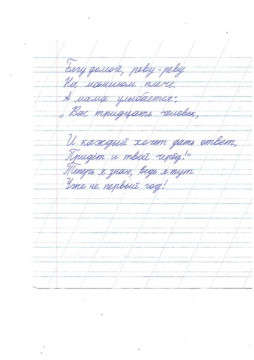 Бегу домой, реву-реву
На мамином плече.
А мама улыбается:
„Вас тридцать человек,
И каждый хочет дать ответ,
Придёт и твой черёд!"
Теперь я знаю, ведь я тут
Уже не первый год!